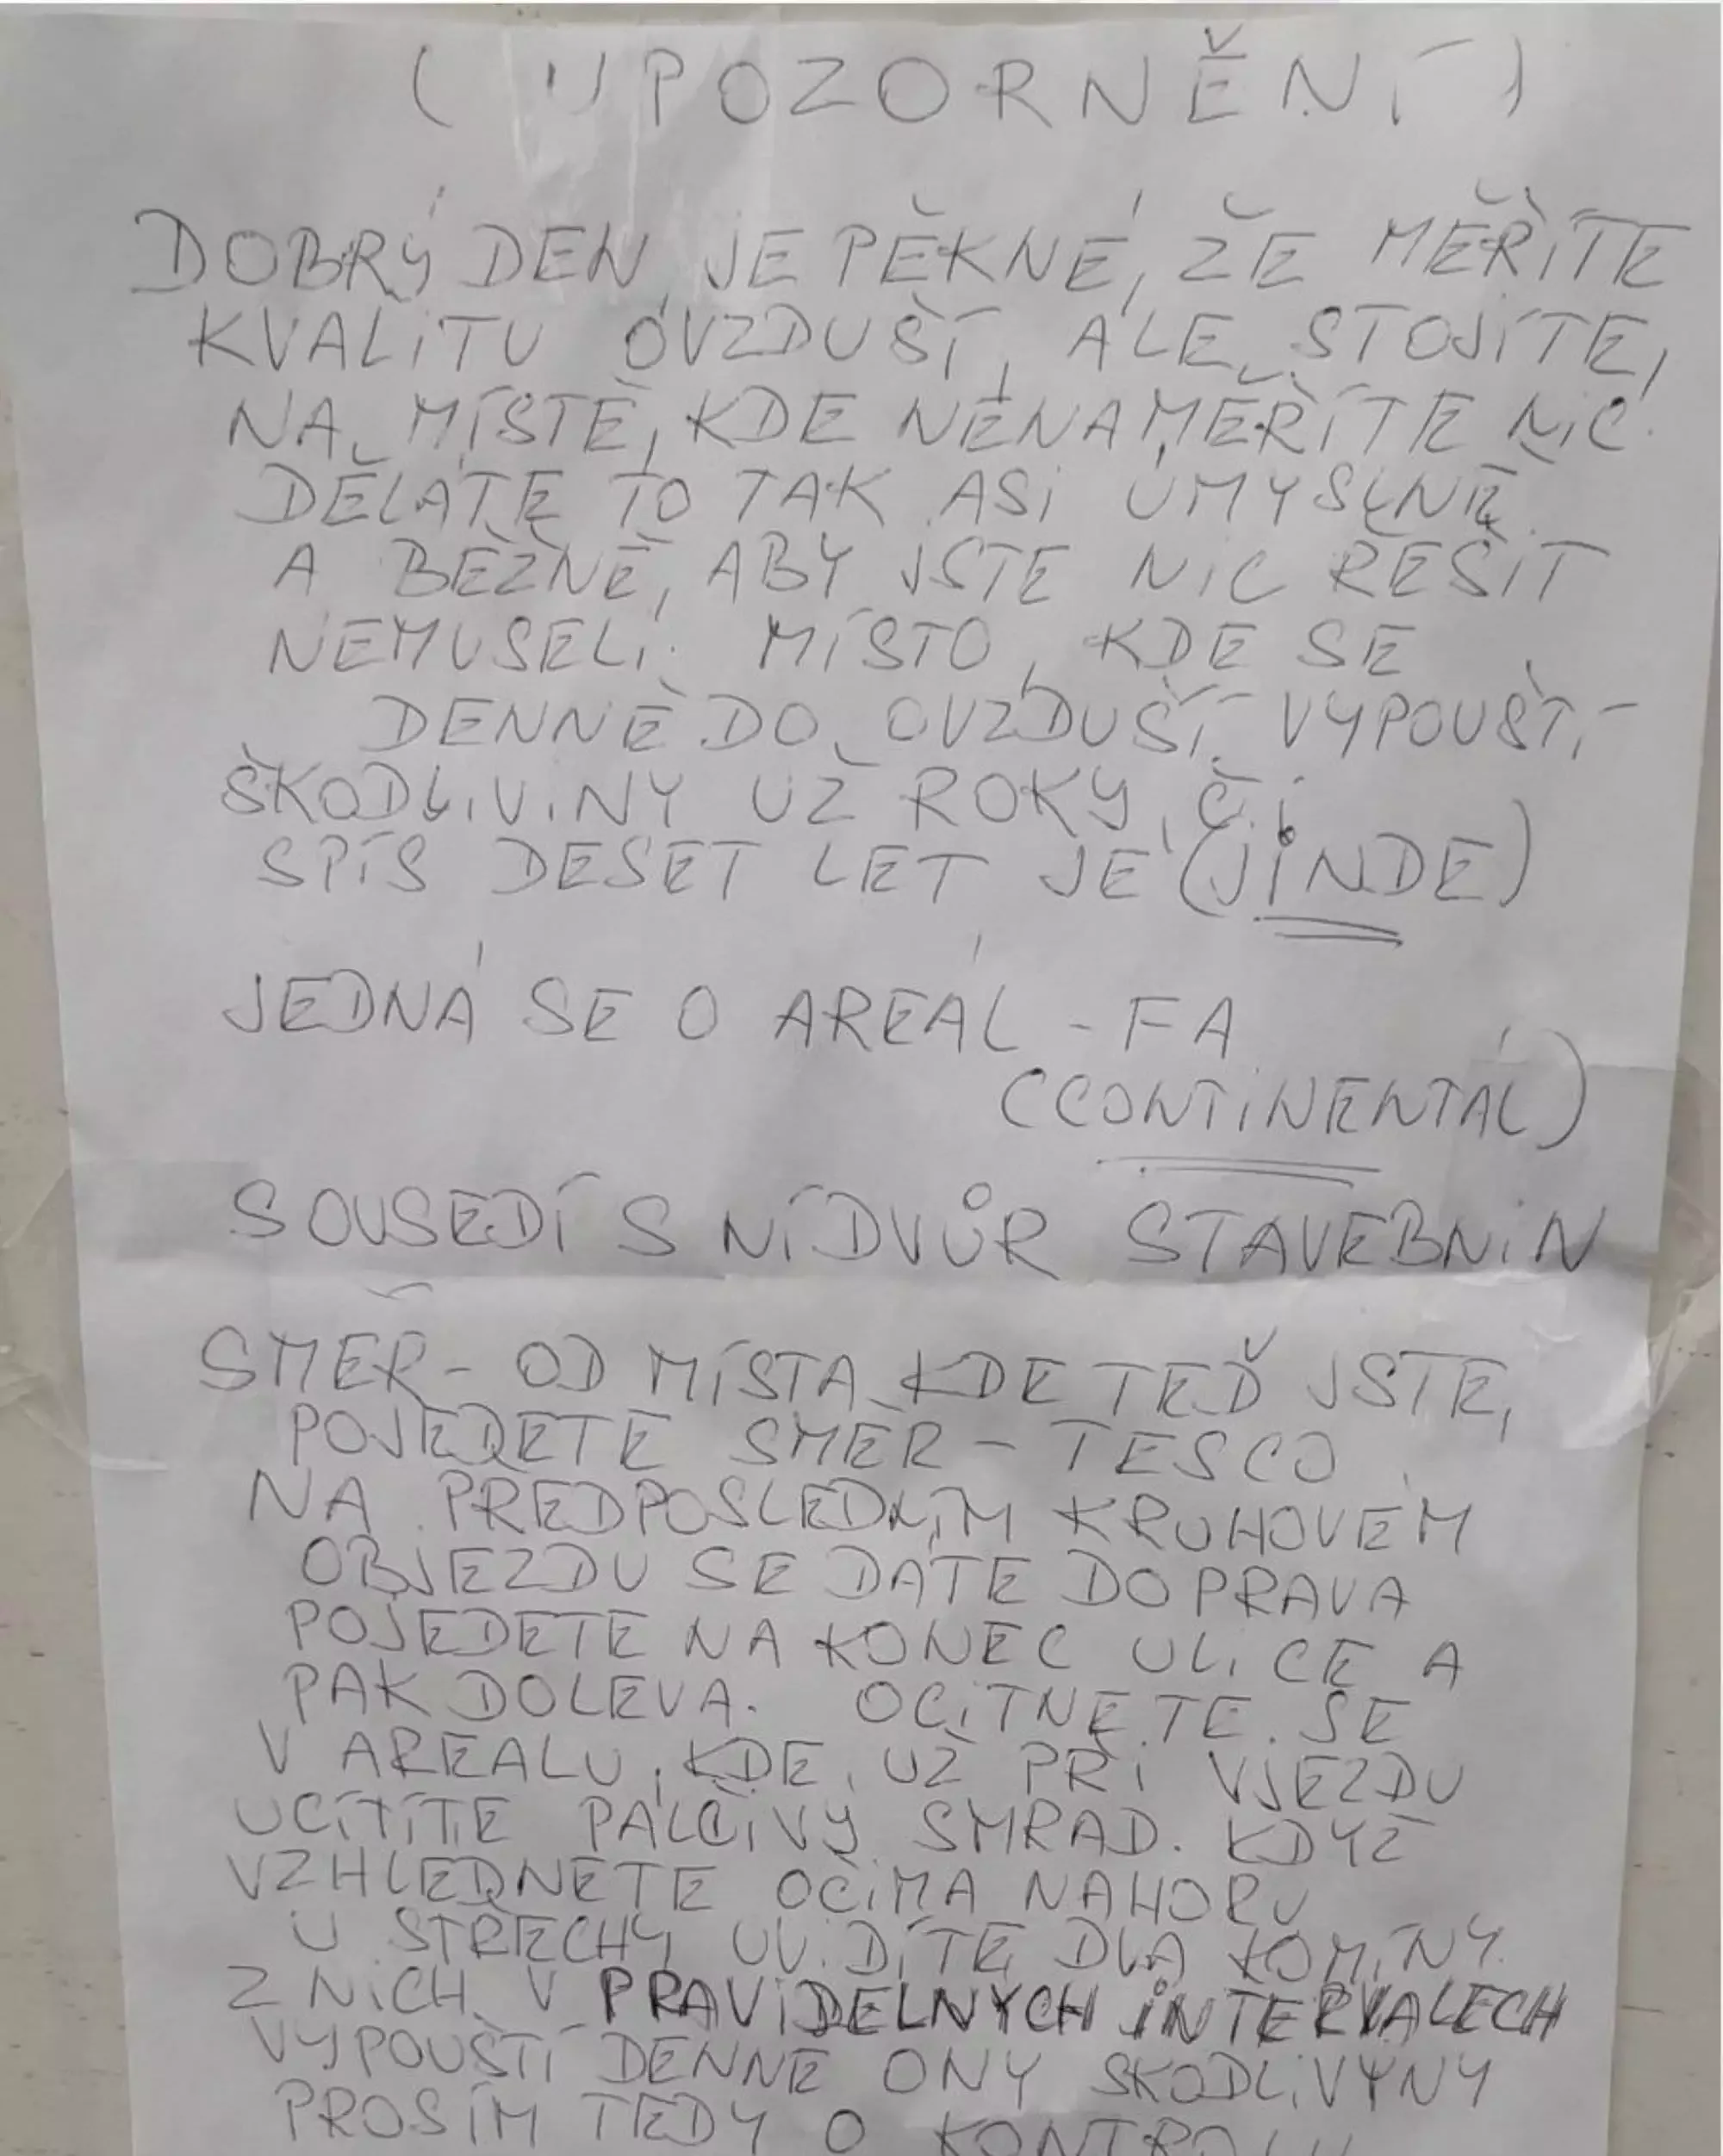 ( UPOZORNĚNÍ )
DOBRÝ DEN, JE PĚKNÉ, ŽE MĚŘÍTE
KVALITU OVZDUŠÍ, ALE STOJÍTE,
NA MÍSTĚ, KDE NENAMĚŘÍTE NIC.
DĚLÁTE TO TAK ASI ÚMYSLNĚ
A BĚŽNĚ, ABY JSTE NIC ŘEŠIT
NEMUSELI. MÍSTO, KDE SE
DENNĚ DO OVZDUŠÍ VYPOUŠTÍ
ŠKODLIVINY UŽ ROKY, ČI
SPÍŠ DESET LET JE (JINDE)
JEDNÁ SE O AREÁL - FA
(CONTINENTÁL)
SOUSEDÍ S NÍ DVŮR STAVEBNIN
SMĚR - OD MÍSTA KDE TEĎ JSTE,
POJEDETE SMĚR - TESCO
NA PŘEDPOSLEDNÍM KRUHOVÉM
OBJEZDU SE DÁTE DOPRAVA
POJEDETE NA KONEC ULICE A
PAK DOLEVA. OCITNETE SE
V AREALU, KDE, UŽ PŘI VJEZDU
UCÍTÍTE PALČIVÝ SMRAD. KDYŽ
VZHLEDNETE OČIMA NAHORU
U STŘECHY UVIDÍTE DVA KOMÍNY.
Z NICH V PRAVIDELNÝCH INTERVALECH
VYPOUŠTÍ DENNĚ ONY ŠKODLIVYNY
PROSÍM TEDY O KONTROLU